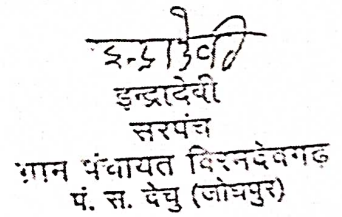 इन्द्रादेवी
इन्द्रादेवी
सरपंच
ग्राम पंचायत विरमदेवगढ़
पं. स. देचु (जोधपुर)